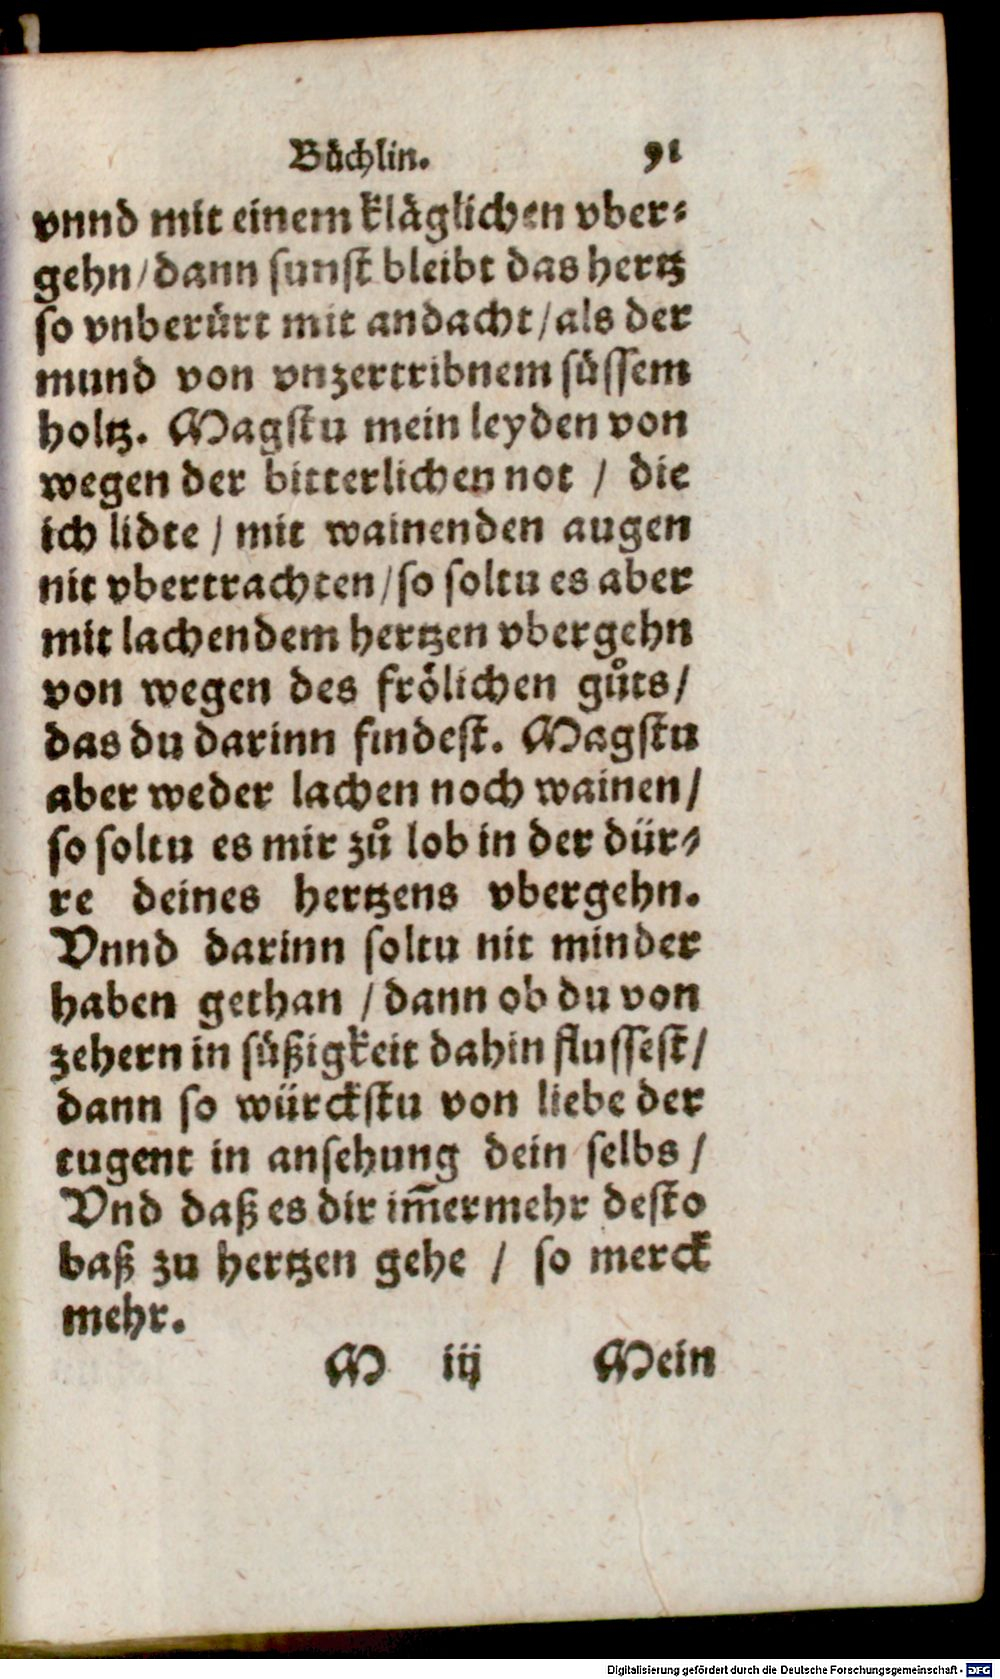 Buͤchlin. 91
vnnd mit einem klaͤglichen vber⸗
gehn/dann sunst bleibt das hertz
so vnberuͤrt mit andacht/als der
mund von vnzertribnem suͤssem
holtz. Magstu mein leyden von
wegen der bitterlichen not / die
ich lidte / mit wainenden augen
nit vbertrachten/so soltu es aber
mit lachendem hertzen vbergehn
von wegen des froͤlichen guͦts/
das du darinn findest. Magstu
aber weder lachen noch wainen/
so soltu es mir zuͦ lob in der dür⸗
re deines hertzens vbergehn.
Vnnd darinn soltu nit minder
haben gethan / dann ob du von
zehern in suͤßigkeit dahin flussest/
dann so würckstu von liebe der
tugent in ansehung dein selbs /
Vnd daß es dir im̃ermehr desto
baß zu hertzen gehe / so merck
mehr.
M iij Mein
Digitalisierung gefördert durch die Deutsche Forschungsgemeinschaft - DFG